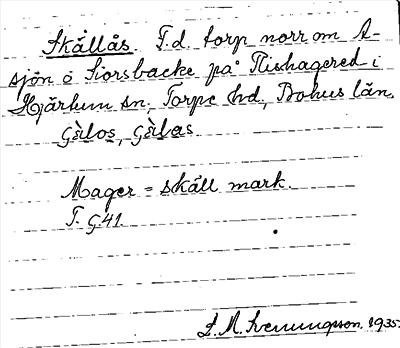 Skållås. F.d. torp norr om A-
sjön o Siorsbacke på Flishagered i
Hjärtum sn. Torpe hd, Bohus län.
Gålos, Gålas
Mager = skåll mark.
T. G.41.
S. M. Svenungson. 1935.